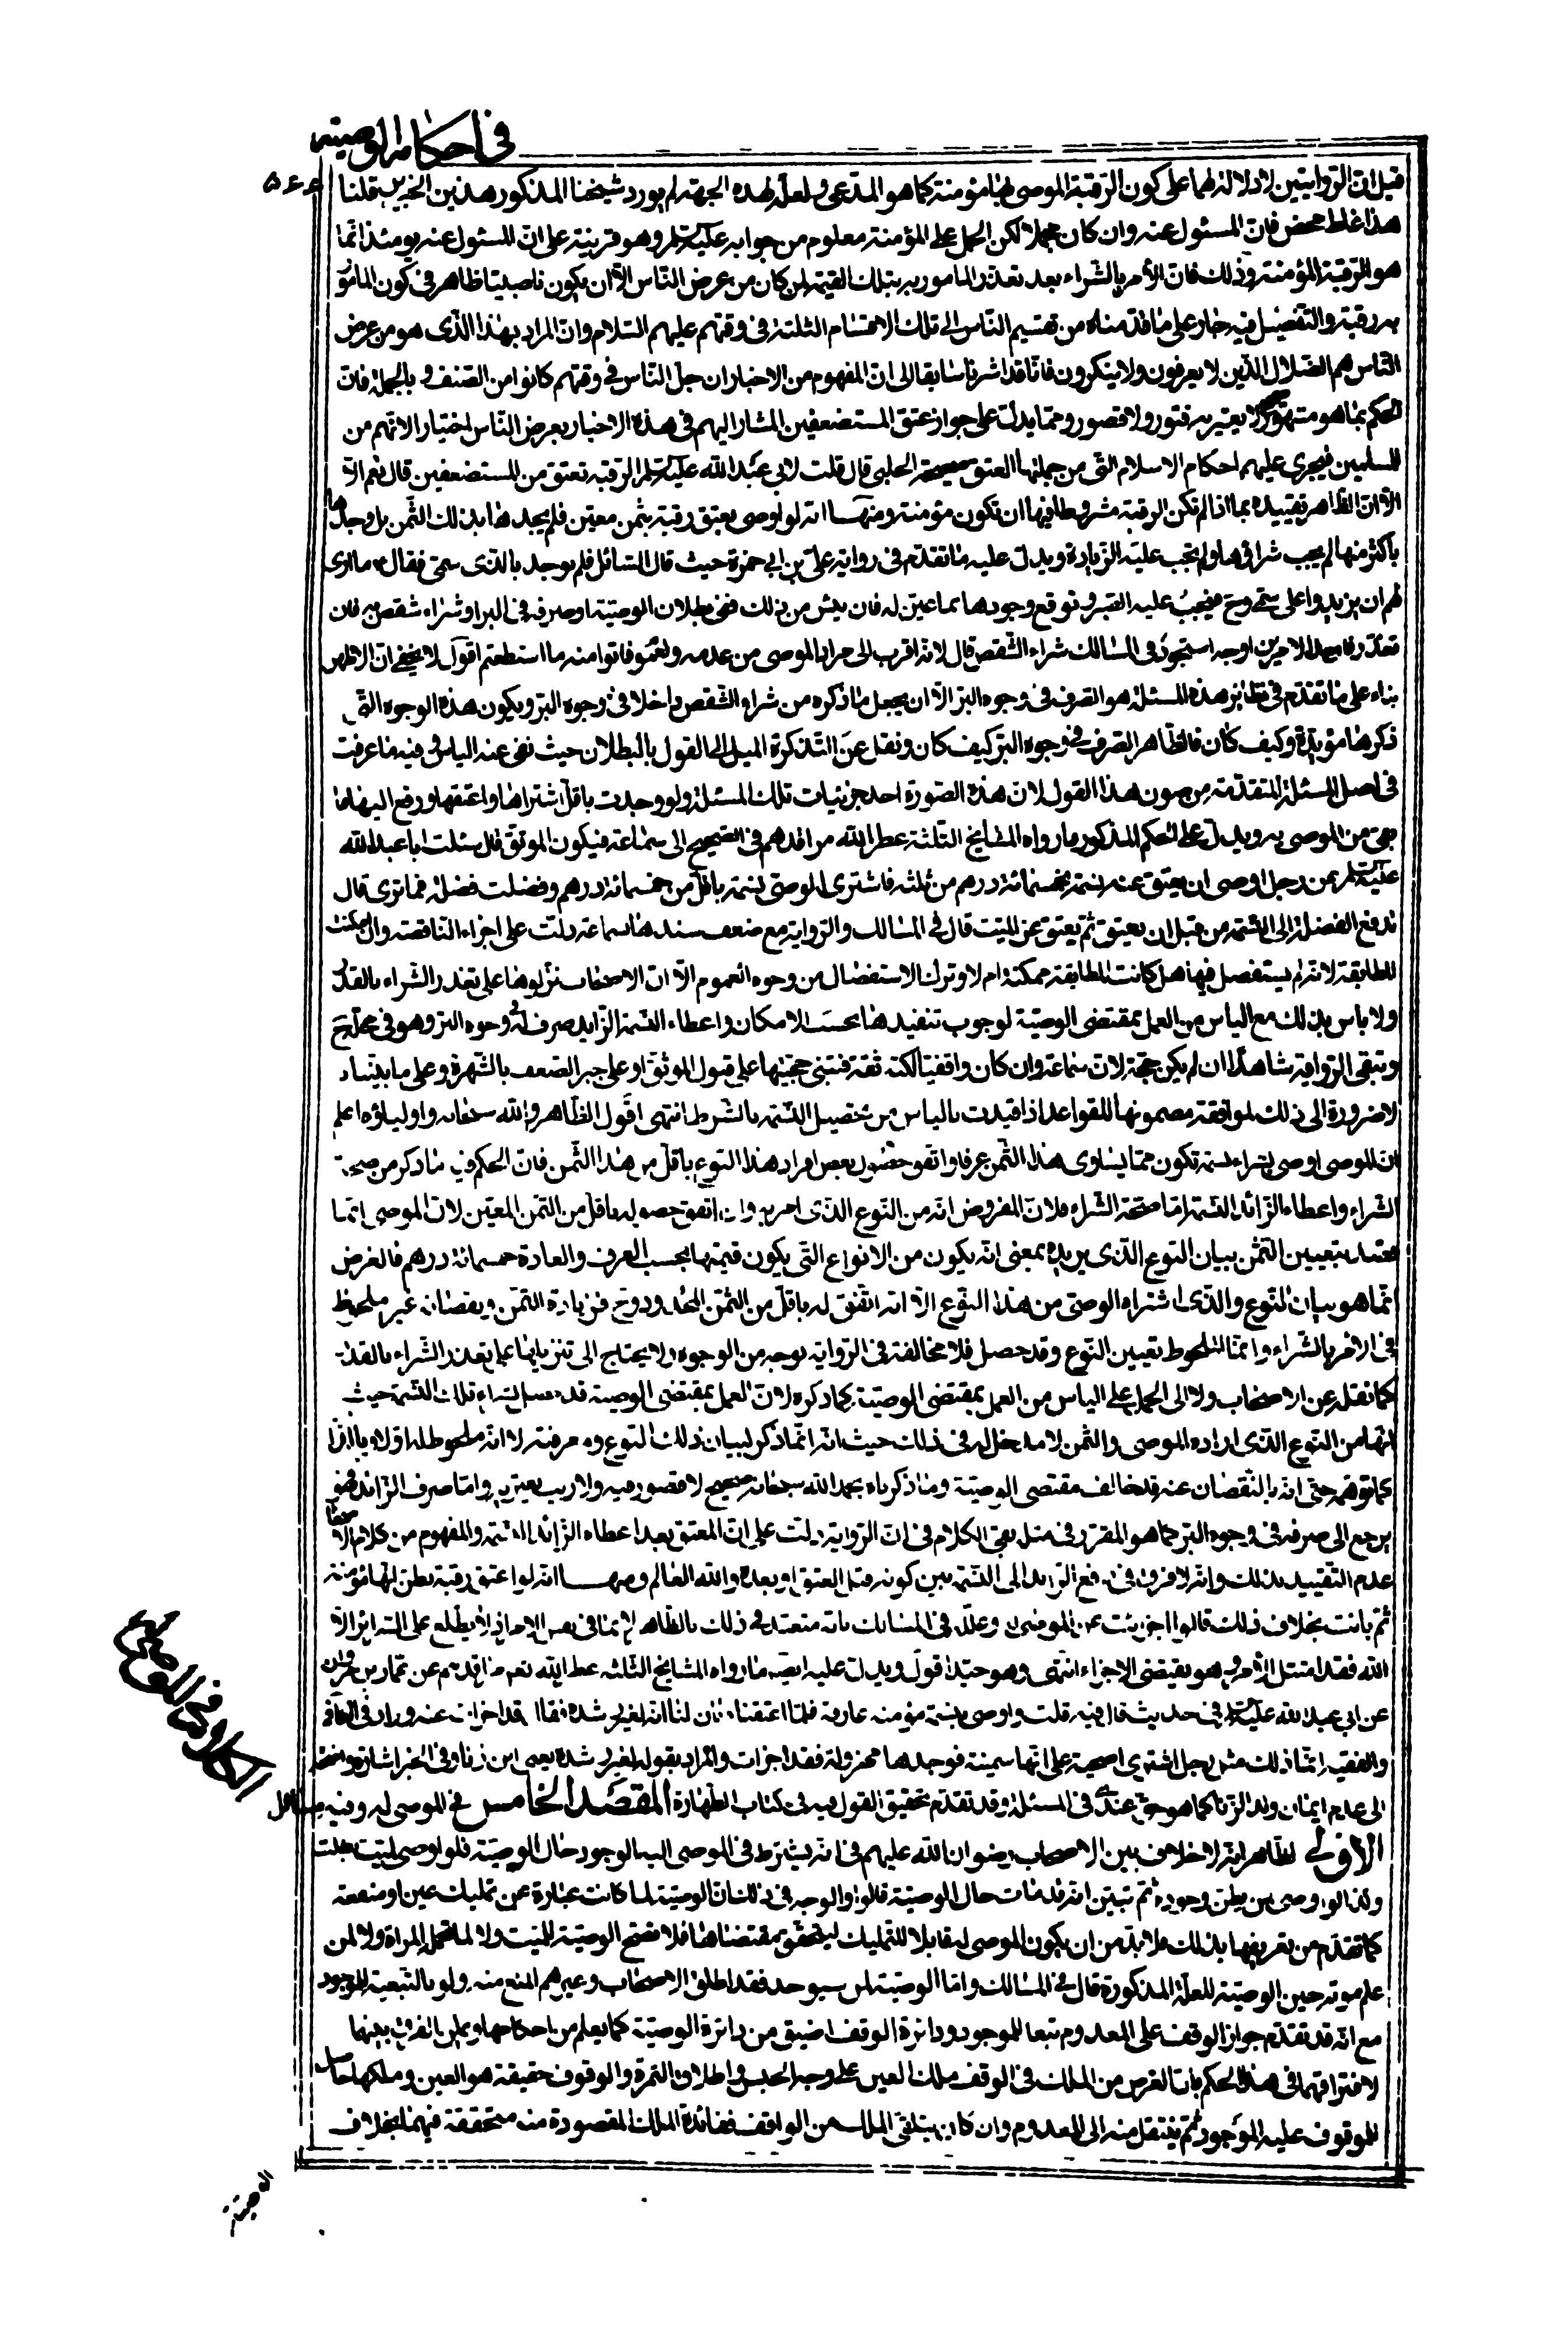 في احكام الوصية
۵۶۶
قيل ان الروايتين لا دلالة لهما على كون الرقبة الموصى بها مؤمنة كما هو المدعى ولعله لهذه الجهة لم يورد شيخنا المذكور هذين الخبرين قلنا
هذا غلط محض فان المسئول عنه وان كان مجملا لكن الحمل على المؤمنة معلوم من جوابه عليه السلم وهو قرينة على ان المسئول عنه يومئذ انما
هو الرقبة المؤمنة وذلك فان الأمر بالشراء بعد تعذر المامور به بتلك القيمة لمن كان من عرض الناس الا ان يكون ناصبيا ظاهر في كون المامور
به رقبة والتفصيل فيه جار على ما قدمناه من تقسيم الناس الى تلك الاقسام الثلثة في وقتهم عليهم السلام وان المراد بهذا الذى هو من عرض
الناس هم الضلال الذين لا يعرفون ولا ينكرون فانا قد اشرنا سابقا الى ان المفهوم من الاخبار ان جل الناس في وقتهم كانوا من الصنف وبالجملة فان
الحكم بما هو مشهور لا يعتريه فتور ولا قصور ومما يدل على جواز عتق المستضعفين المشار اليهم في هذه الاخبار بعرض الناس اختيار الانهم من
المسلمين فيجرى عليهم احكام الاسلام التى من جملتها العتق صحيحة الحلبى قال قلت لابي عبد الله عليه السلم الرقبة تعتق من المستضعفين قال نعم الا
الا ان الظاهر تقييده بما اذا لم تكن الرقبة مشروطا فيها ان تكون مؤمنة ومنها انه لو اوصى بعتق رقبة بثمن معين فلم يجدها بذلك الثمن بل وجدها
باكثر منها لم يجب شراؤها ولم تجب عليه الزيادة ويدل عليه ما تقدم في رواية على بن ابي حمزة حيث قال السائل فلم يوجد بالذى سمى فقال ما ارى
لهم ان يزيدوا على ما سمى وح فيجب عليه الصبر وتوقع وجودها بما عين له فان يئس من ذلك ففى بطلان الوصية او صرفه في البر او شراء شقص به فان
تعذر فاحد الامرين اوجه استجود في المسالك شراء الشقص قال لانه اقرب الى مراد الموصى من عدمه ولعموم فاتوا منه ما استطعتم اقول لا يخفى ان الاظهر
بناء على ما تقدم في نظاير هذه المسئلة هو الصرف في وجوه البر الا ان يجعل ما ذكره من شراء الشقص داخلا في وجوه البر ويكون هذه الوجوه التى
ذكرها مؤيدة وكيف كان فالظاهر الصرف في وجوه البر كيف كان ونقل عن التذكرة الميل الى القول بالبطلان حيث نفى عند الياس وفيه ما عرفت
في اصل المسئلة المتقدمة من هذا القول لان هذه الصورة احد جزئيات تلك المسئلة ولو وجدت باقل اشتراها واعتقها ودفع اليها ما
بقى من الموصى به ويدل على الحكم المذكور ما رواه المشايخ الثلثة عطر الله مراقدهم في الصحيح الى سماعة فيكون الموثق قال سئلت ابا عبد الله
عليه السلم عن رجل اوصى ان يعتق عنه نسمة بخمسمائة درهم من ثلثه فاشترى الوصى نسمة باقل من خمسمائة درهم وفضلت فضلة فما ترى قال
تدفع الفضلة الى النسمة من قبل ان يعتق ثم يعتق عن الميت قال في المسالك والرواية مع ضعف سندها بسماعة دلت على اجزاء الناقصة وان امكنت
المطابقة لانه لم يستفصل فيها هل كانت المطابقة ممكنة ام لا وترك الاستفصال من وجوه العموم الا ان الاصحاب نزلوها على تعذر الشراء بالقدر
ولا باس بذلك مع الياس من العمل بمقتضى الوصية لوجوب تنفيذها بحسب الامكان واعطاء النسمة الزايد صرف له في وجوه البر وهو في محله ح
وتبقى الرواية شاهدا ان لم يكن حجة لان سماعة وان كان واقفيا لكنه ثقة فتبنى حجيتها على قبول الموثق او على جبر الضعف بالشهرة وعلى ما بيناه
لا ضرورة الى ذلك لموافقة مضمونها للقواعد اذا قيدت بالياس من تحصيل النسمة بالشرط انتهى اقول الظاهر والله سبحانه واولياؤه اعلم
ان الموصى اوصى بشراء نسمة تكون مما يساوى هذا الثمن عرفا واتفق حصول بعض افراد هذا النوع باقل من هذا الثمن فان الحكم فيه ما ذكر من صحة
الشراء واعطاء الزائد النسمة اما صحة الشراء فلان المفروض انه من النوع الذى امر به وان اتفق حصوله باقل من الثمن المعين لان الموصى انما
قصد بتعيين الثمن بيان النوع الذى يريده بمعنى انه يكون من الانواع التى يكون قيمتها بحسب العرف والعادة خمسمائة درهم فالغرض
انما هو بيان النوع والذى اشتراه الوصى من هذا النوع الا انه اتفق له باقل من الثمن المحدود وح فزيادة الثمن ونقصانه غير ملحوظ
في الامر بالشراء وانما الملحوظ تعيين النوع وقد حصل فلا مخالفة في الرواية بوجه من الوجوه ولا يحتاج الى تنزيلها على تعذر الشراء بالقدر
كما نقله عن الاصحاب ولا الى الحمل على الياس من العمل بمقتضى الوصية كما ذكره لان العمل بمقتضى الوصية قد حصل بشراء تلك النسمة حيث
انها من النوع الذى اراده الموصى والثمن لا مدخل له في ذلك حيث انه انما ذكر لبيان ذلك النوع ومعرفته لا انه ملحوظ له اولا بالذات
كما توهمه حتى انه بالنقصان عنه قد خالف مقتضى الوصية وما ذكرناه بحمد الله سبحانه صحيح لا قصور فيه ولا ريب يعتريه واما صرف الزائد فهو
يرجع الى صرفه في وجوه البر كما هو المقرر في مثله بقى الكلام في ان الرواية دلت على ان المعتق بعد اعطاء الزائد النسمة والمفهوم من كلام الاصحاب
عدم التقييد بذلك وانه لا فرق في دفع الزايد الى النسمة بين كونه قبل العتق او بعده والله العالم ومنها انه لو اعتق رقبة بظن انها مؤمنة
ثم بانت بخلاف ذلك قالوا اجزئت عن الموصى وعلله في المسالك بانه متعبد في ذلك بالظاهر اذ لا يطلع على السرائر الا
الله فقد امتثل الامر وهو يقتضى الاجزاء انتهى وهو جيد اقول ويدل عليه ايضا ما رواه المشايخ الثلثة عطر الله تعالى مراقدهم عن عمار بن مروان
عن ابي عبد الله عليه السلم في حديث قال فيه قلت واوصى بنسمة مؤمنة عارفة فلما اعتقناه بان لنا انه لغير رشدة فقال قد اجزات عنه وزاد في الكافي
والفقيه انما ذلك مثل رجل اشترى اضحية على انها سمينة فوجدها مهزولة فقد اجزات والمراد بقوله لغير رشدة يعنى ابن زنا وفي الخبر اشارة واضحة
الى عدم ايمان ولد الزنا كما هو حق عندى في المسئلة وقد تقدم تحقيق القول فيه في كتاب الطهارة المقصد الخامس في الموصى له وفيه مسائل
الاولى الظاهر انه لا خلاف بين الاصحاب رضوان الله عليهم في انه يشترط في الموصى اليه الوجود حال الوصية فلو اوصى لميت بطلت
وكذا لو اوصى لمن يظن وجوده ثم تبين انه قد مات حال الوصية قالوا والوجه في ذلك ان الوصية لما كانت عبارة عن تمليك عين او منفعة
كما تقدم من تعريفها بذلك فلا بد من ان يكون الموصى له قابلا للتمليك ليتحقق مقتضاها فلا تصح الوصية للميت ولا لما تحمل المراة ولا لمن
علم موته حين الوصية للعلة المذكورة قال في المسالك واما الوصية لمن سيوجد فقد اطلق الاصحاب وغيرهم المنع منه ولو بالتبعية للموجود
مع انه قد تقدم جواز الوقف على المعدوم تبعا للموجود ودائرة الوقف اضيق من دائرة الوصية كما يعلم من احكامها ويمكن الفرق بينهما
لافتراقهما في هذا الحكم بان الغرض من الملك في الوقف ملك العين على وجه الحبس واطلاق الثمرة والوقوف حقيقة هو العين وملكها حاصل
للموقوف عليه الموجود ثم ينتقل منه الى المعدوم وان كان يتلقى الملك من الواقف ففائدة الملك المقصودة منه متحققة فيهما بخلاف
الكلام في الموصى له
الوصية